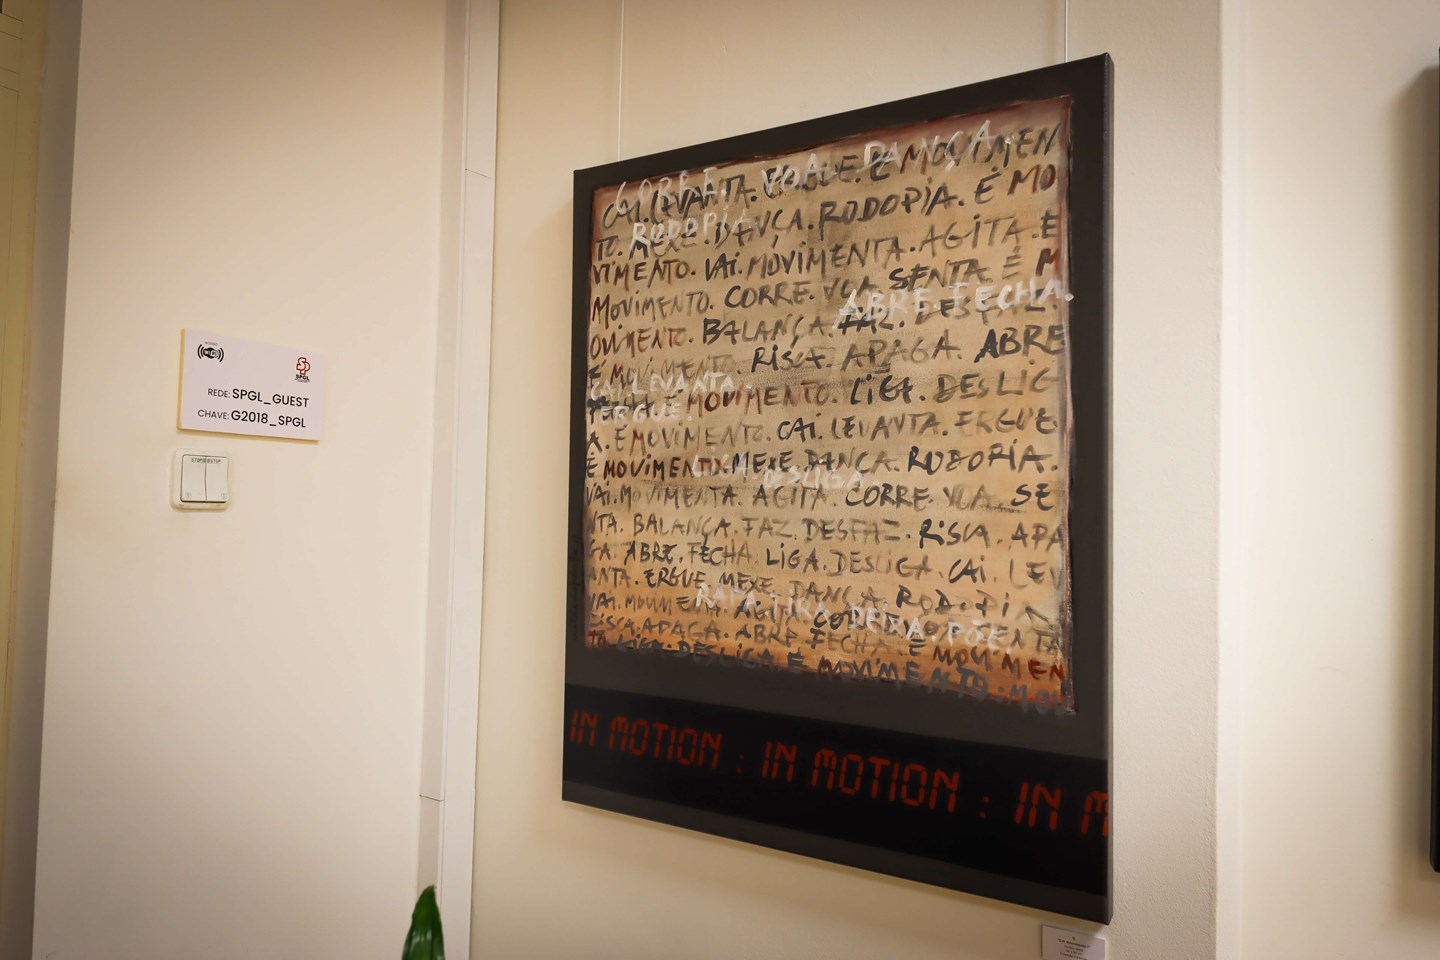 SPGL
REDE: SPGL_GUEST
CHAVE: G2018_SPGL
CORRE. VOA. DANÇA.
CAI. LEVANTA. ERGUE. É MOVIMEN
RODOPIA
TO. MEXE. DANÇA. RODOPIA. É MO
VIMENTO. VAI. MOVIMENTA. AGITA. É
MOVIMENTO. CORRE. VOA. SENTA. É M
ABRE. FECHA.
OVIMENTO. BALANÇA. FAZ. DESFAZ.
É MOVIMENTO. RISCA. APAGA. ABRE
CAI. LEVANTA.
FECHA. É MOVIMENTO. LIGA. DESLIG
ERGUE.
A. É MOVIMENTO. CAI. LEVANTA. ERGUE.
É MOVIMENTO. MEXE. DANÇA. RODOPIA.
LIGA. DESLIGA.
VAI. MOVIMENTA. AGITA. CORRE. VOA. SE
NTA. BALANÇA. FAZ. DESFAZ. RISCA. APA
GA. ABRE. FECHA. LIGA. DESLIGA. CAI. LEV
ANTA. ERGUE. MEXE. DANÇA. RODOPIA
VAI. MOVIMENTA. AGITA. CORRE. VOA. SENTA
RISCA. APAGA. ABRE. FECHA. É MOVIMEN
TO. LIGA. DESLIGA. É MOVIMENTO. MOV
IN MOTION : IN MOTION : IN M